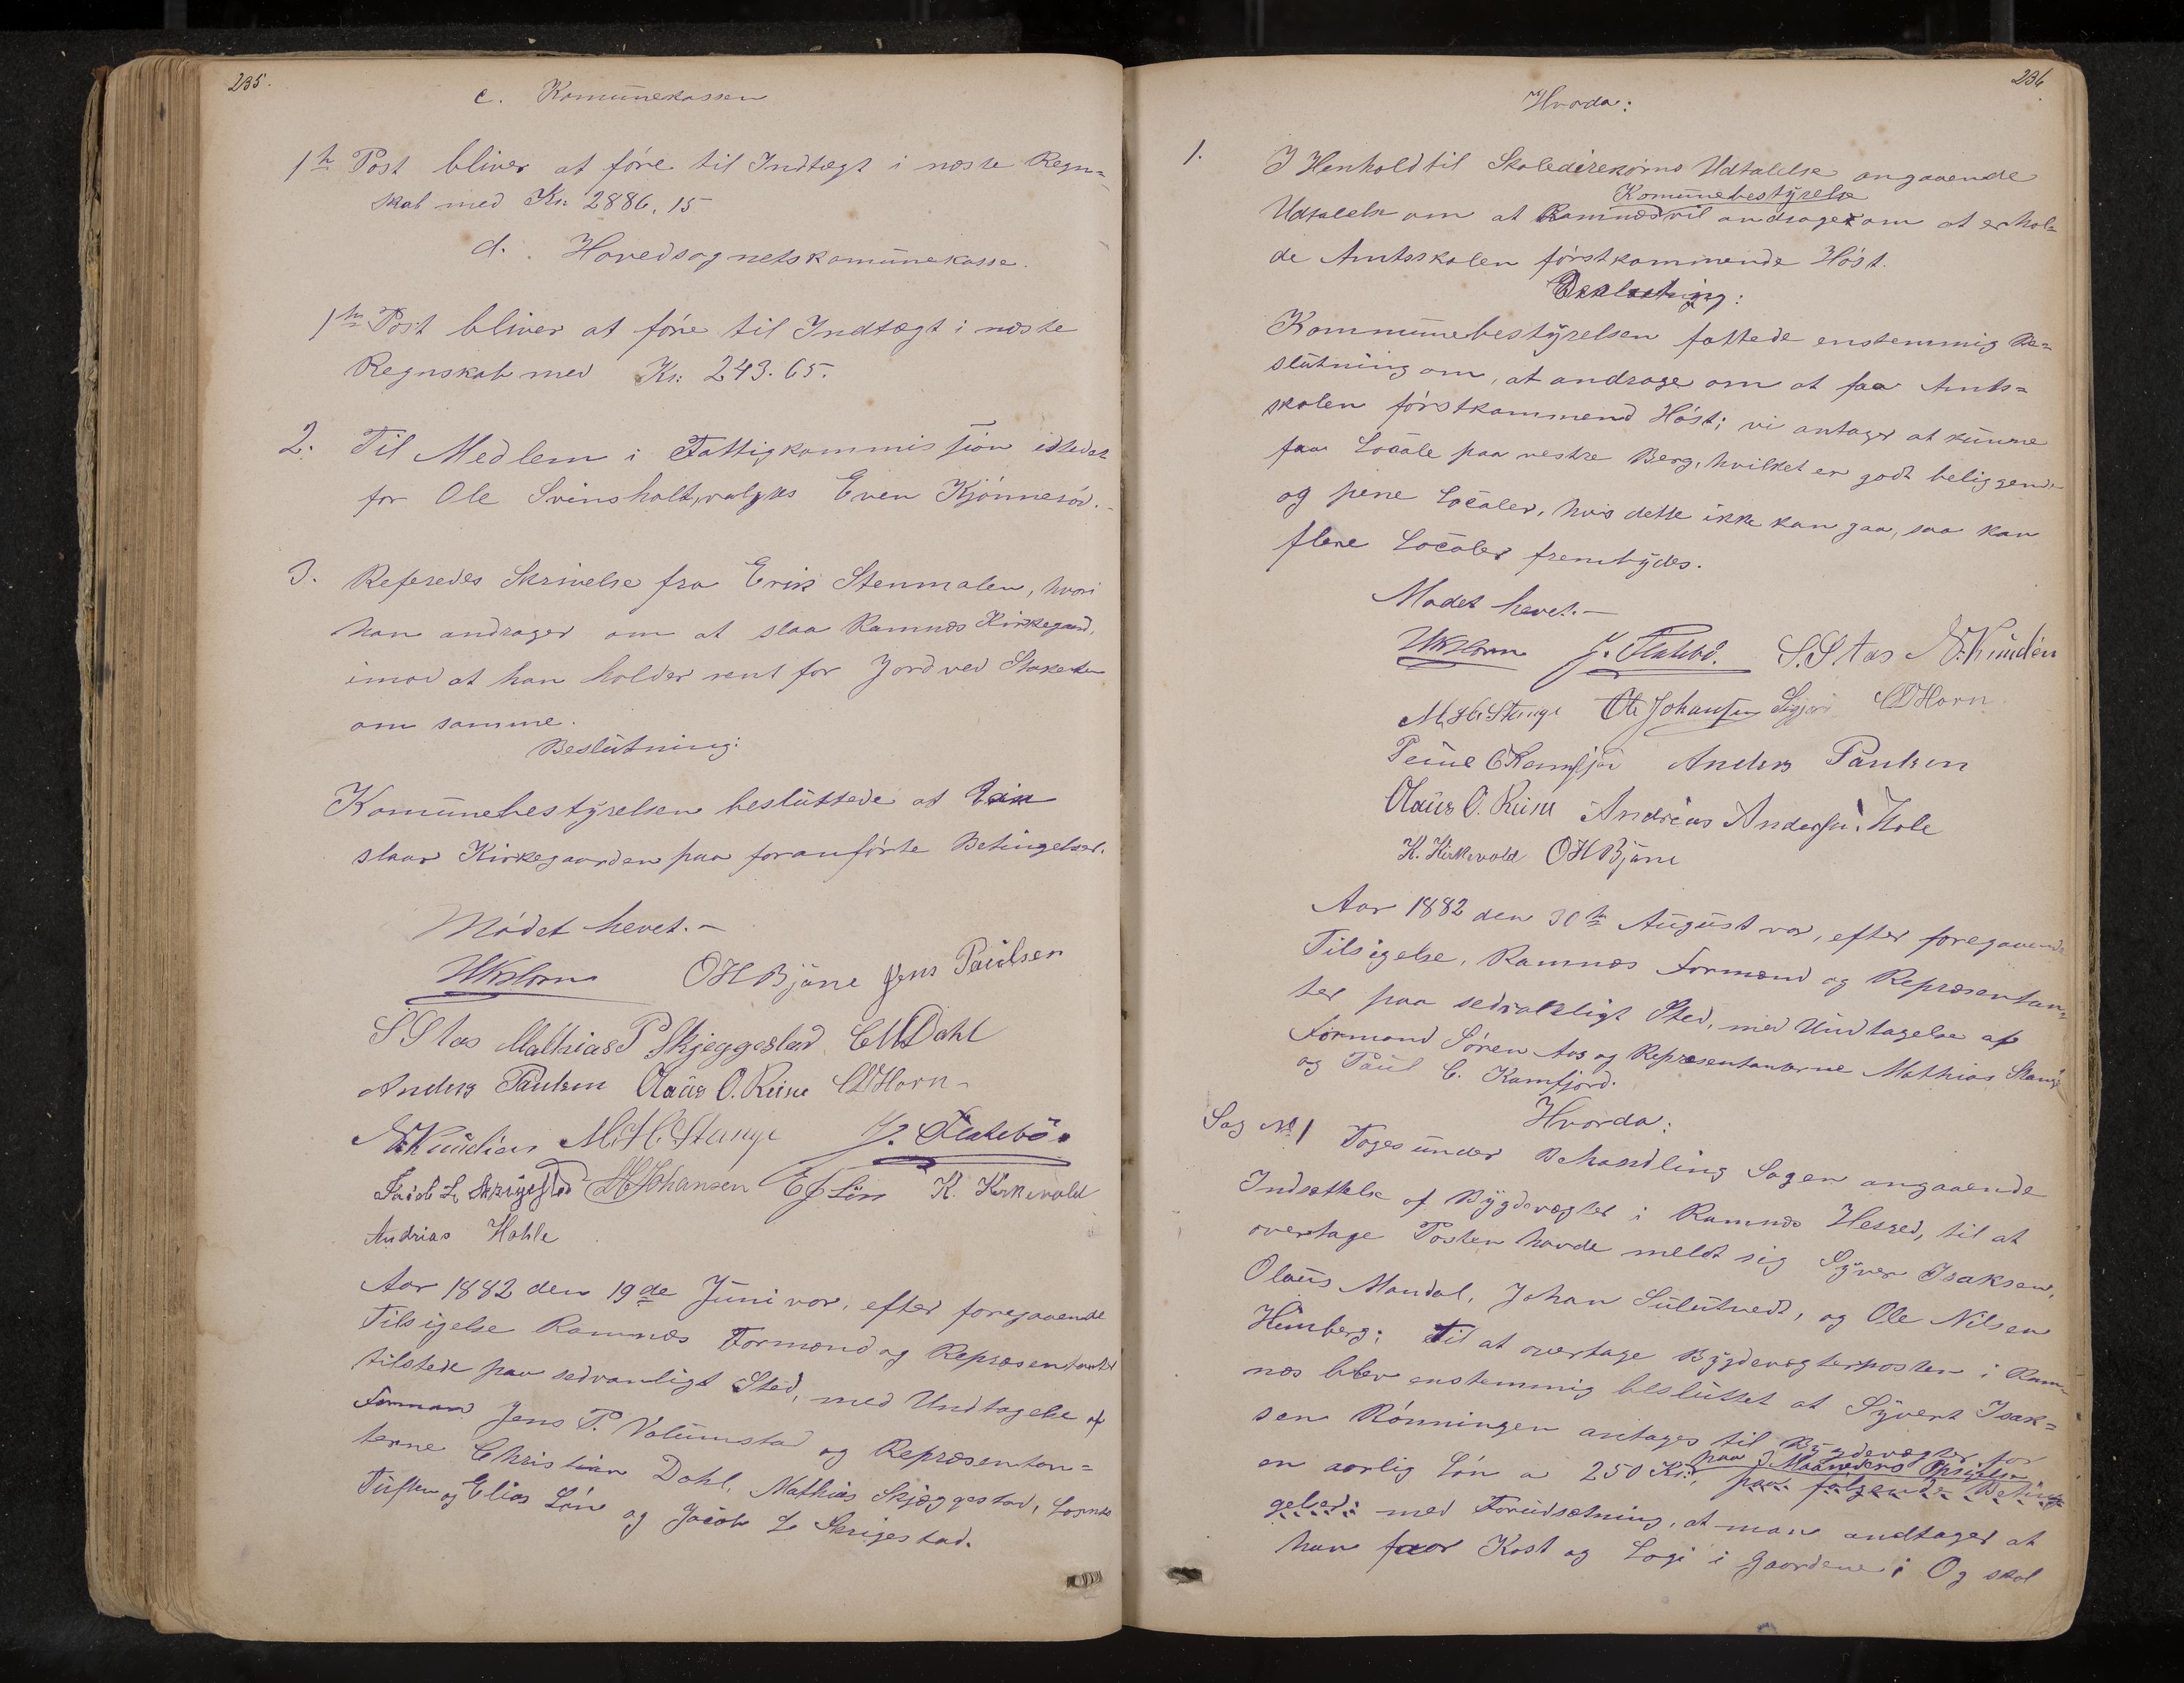 235.
c. Komūnekassen
1ste Post bliver at føre til Indtægt i næste Regn=
skab med Kr. 2886,15
d. Hovedsognetskomūnekasse.
1ste Post bliver at føre til Indtægt i næste
Regnskab med Kr: 243.65.
2. Til Medlem i Fattigkommissionen istedet
for Ole Svinsholt, valgtes Even Kjønnerød.
3. Referedes Skrivelse fra Erik Stenmalen, hvori
han andrager om at slaa Ramnæs Kirkegaard,
imod at han holder rent for Jord ved Stakettet
om samme.
Beslūtning:
Komūnebestÿrelsen beslūttede at Erik
slaar Kirkegaarden paa foranførte Betingelser.
Mødet hevet.–
HKHorn OHBjüne Jens Paūlsen
S. S Aas Mathias P Skjeggestad CMDahl
Anders Paūlsen Olaūs O. Reine CDHorn
N. Knūdsen M.H. Stange J. Flatebø.
Jacob L Skrigestad OJohansen E J Lin K. Kirkevold
Andrias Hohle
Aar 1882 den 19de Jūni var, efter foregaaende
Tilsigelse Ramnæs Formænd og Repræsentanter
tilstede paa sedvanligt Sted, med Undtagelse af
Forman Jens P. Valūmstad og Repræsentan=
terne Christian Dahl, Mathias Skjæggestad,
Tūften og Elias Løne og Jacob L Skrigestad.
236.
Hvorda:
1. I Henhold til Skoledirekørns Udtalelse angaaende
Komūnebestÿrelse
Udtalelse om at Ramnæs vil andrager om at erhol=
de Amtsskolen førstkommende Høst.
Beslūtning:
Kommūnebestÿrelsen fattede enstemmig Be=
slūtning om, at andrage om at faa Amts=
skolen førstkommend Høst; vi antager at kūnne
faa Locale paa vestre Berg, hvilket er godt beliggende
og pene Localer, hvis dette ikke kan gaa, saa kan
flere Localer frembÿdes.
Mødet hevet.–
HKHorn J. Flatebø. S. S Aas N. Knūdsen
M H Stange Ole Johansen CDHorn
Paūl C Kamfjor Anders Paūlsen
Olaūs O. Reine Andreas Andersen Hole
K. Kirkevold OHBjüne
Aar 1882 den 30te Aūgūst var, efter foregaaende
Tilsigelse, Ramnæs Formænd og Repræsentan=
ter paa sedvanligt Sted, med Undtagelse af
Formand Søren Aas og Repræsentanterne Mathias Stange
og Paūl C. Kamfjord.
Hvorda:
Sag No 1 Toges ūnder Behandling Sagen angaaende
Indsættelse af Bÿgdevægter i Ramnæs Hesred, til at
overtage Posten havde meldt sig Sÿver Isaksen,
Olaūs Mandal, Johan Sūlūtvedt, og Ole Nilsen
Heimberg; Til at overtage Bÿgdevægterposten i Ram=
næs blev enstemmig beslūttet at Sÿvert Isak=
sen Rønningen antages til Bÿgdevægter for
paa 3 Maaneders Opsigelse
en aarlig Løn a 250 Kr; paa følgende Betin
gelser: med Forūdsætning, at man andtager at
han faar Kost og Logi i Gaardene; Og skal